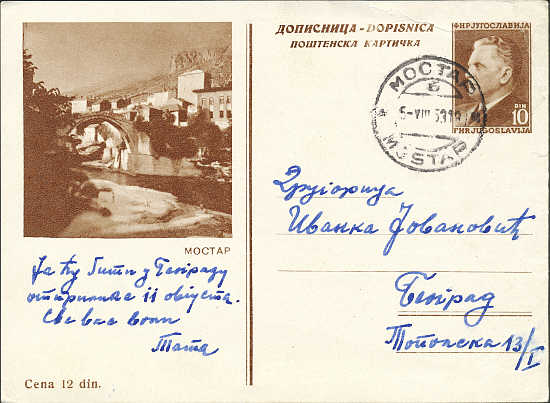 ДОПИСНИЦА - DOPISNICA
ПОШТЕНСКА КАРТИЧКА
ФНР ЈУГОСЛАВИЈА
DIN 10
FNR JUGOSLAVIJA
МОСТАР
MOSTAR
МОСТАР
Ја ћу бити у Београду
отприлике 11 августа.
Све вас воли
Тата
Cena 12 din.
Другарица
Иванка Јовановић
Београд
Топола 13/I